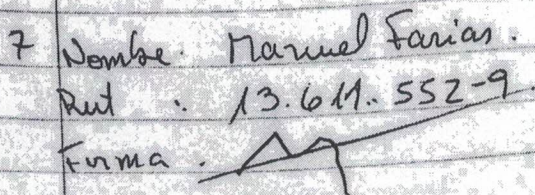 7 Nombre. Manuel Farias.
Rut : 13.611.552-9
Firma.